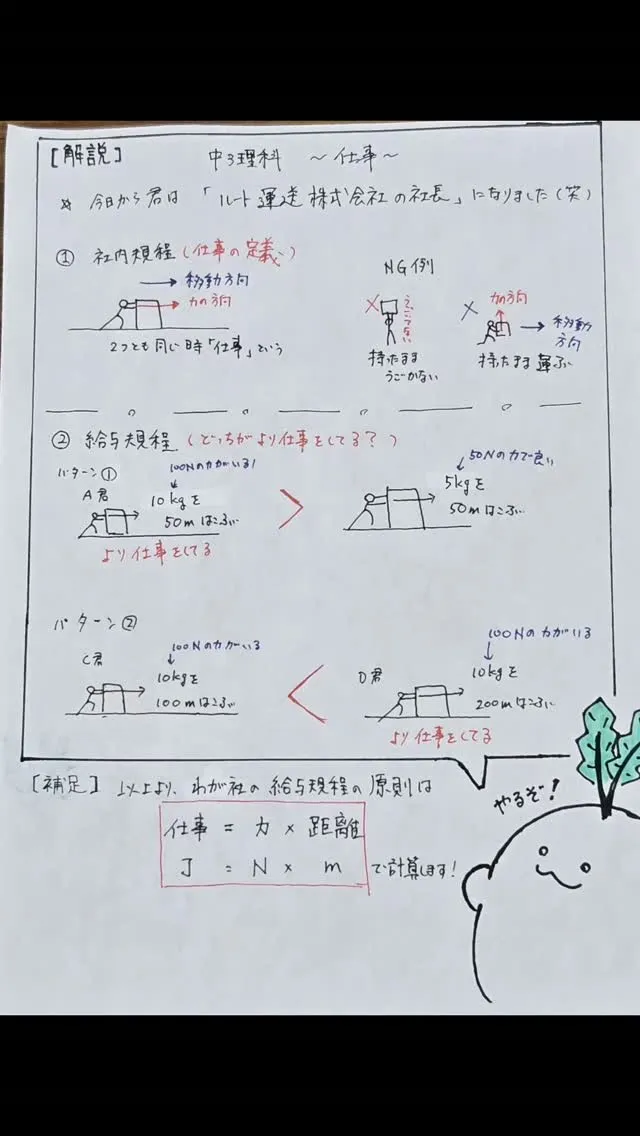 [解説] 中3理科 ～仕事～
☆ 今日から君は「ルート運送株式会社の社長」になりました(笑)
① 社内規程(仕事の定義)
NG例
→移動方向
→力の方向
2つとも同じ時「仕事」という
うごいてない
持ったまま
うごかない
力の方向
→移動方向
持ったまま運ぶ
② 給与規程(どっちがより仕事をしてる?)
パターン①
100Nの力がいる!
A君
10kgを
50mはこぶ
より仕事をしてる
>
50Nの力で良い
5kgを
50mはこぶ
パターン②
100Nの力がいる
C君
10kgを
100mはこぶ
<
100Nの力がいる
D君
10kgを
200mはこぶ
より仕事をしてる
[補足] 以上より、わが社の給与規程の原則は
仕事 = 力 × 距離
J = N × m で計算します!
やるぞ!